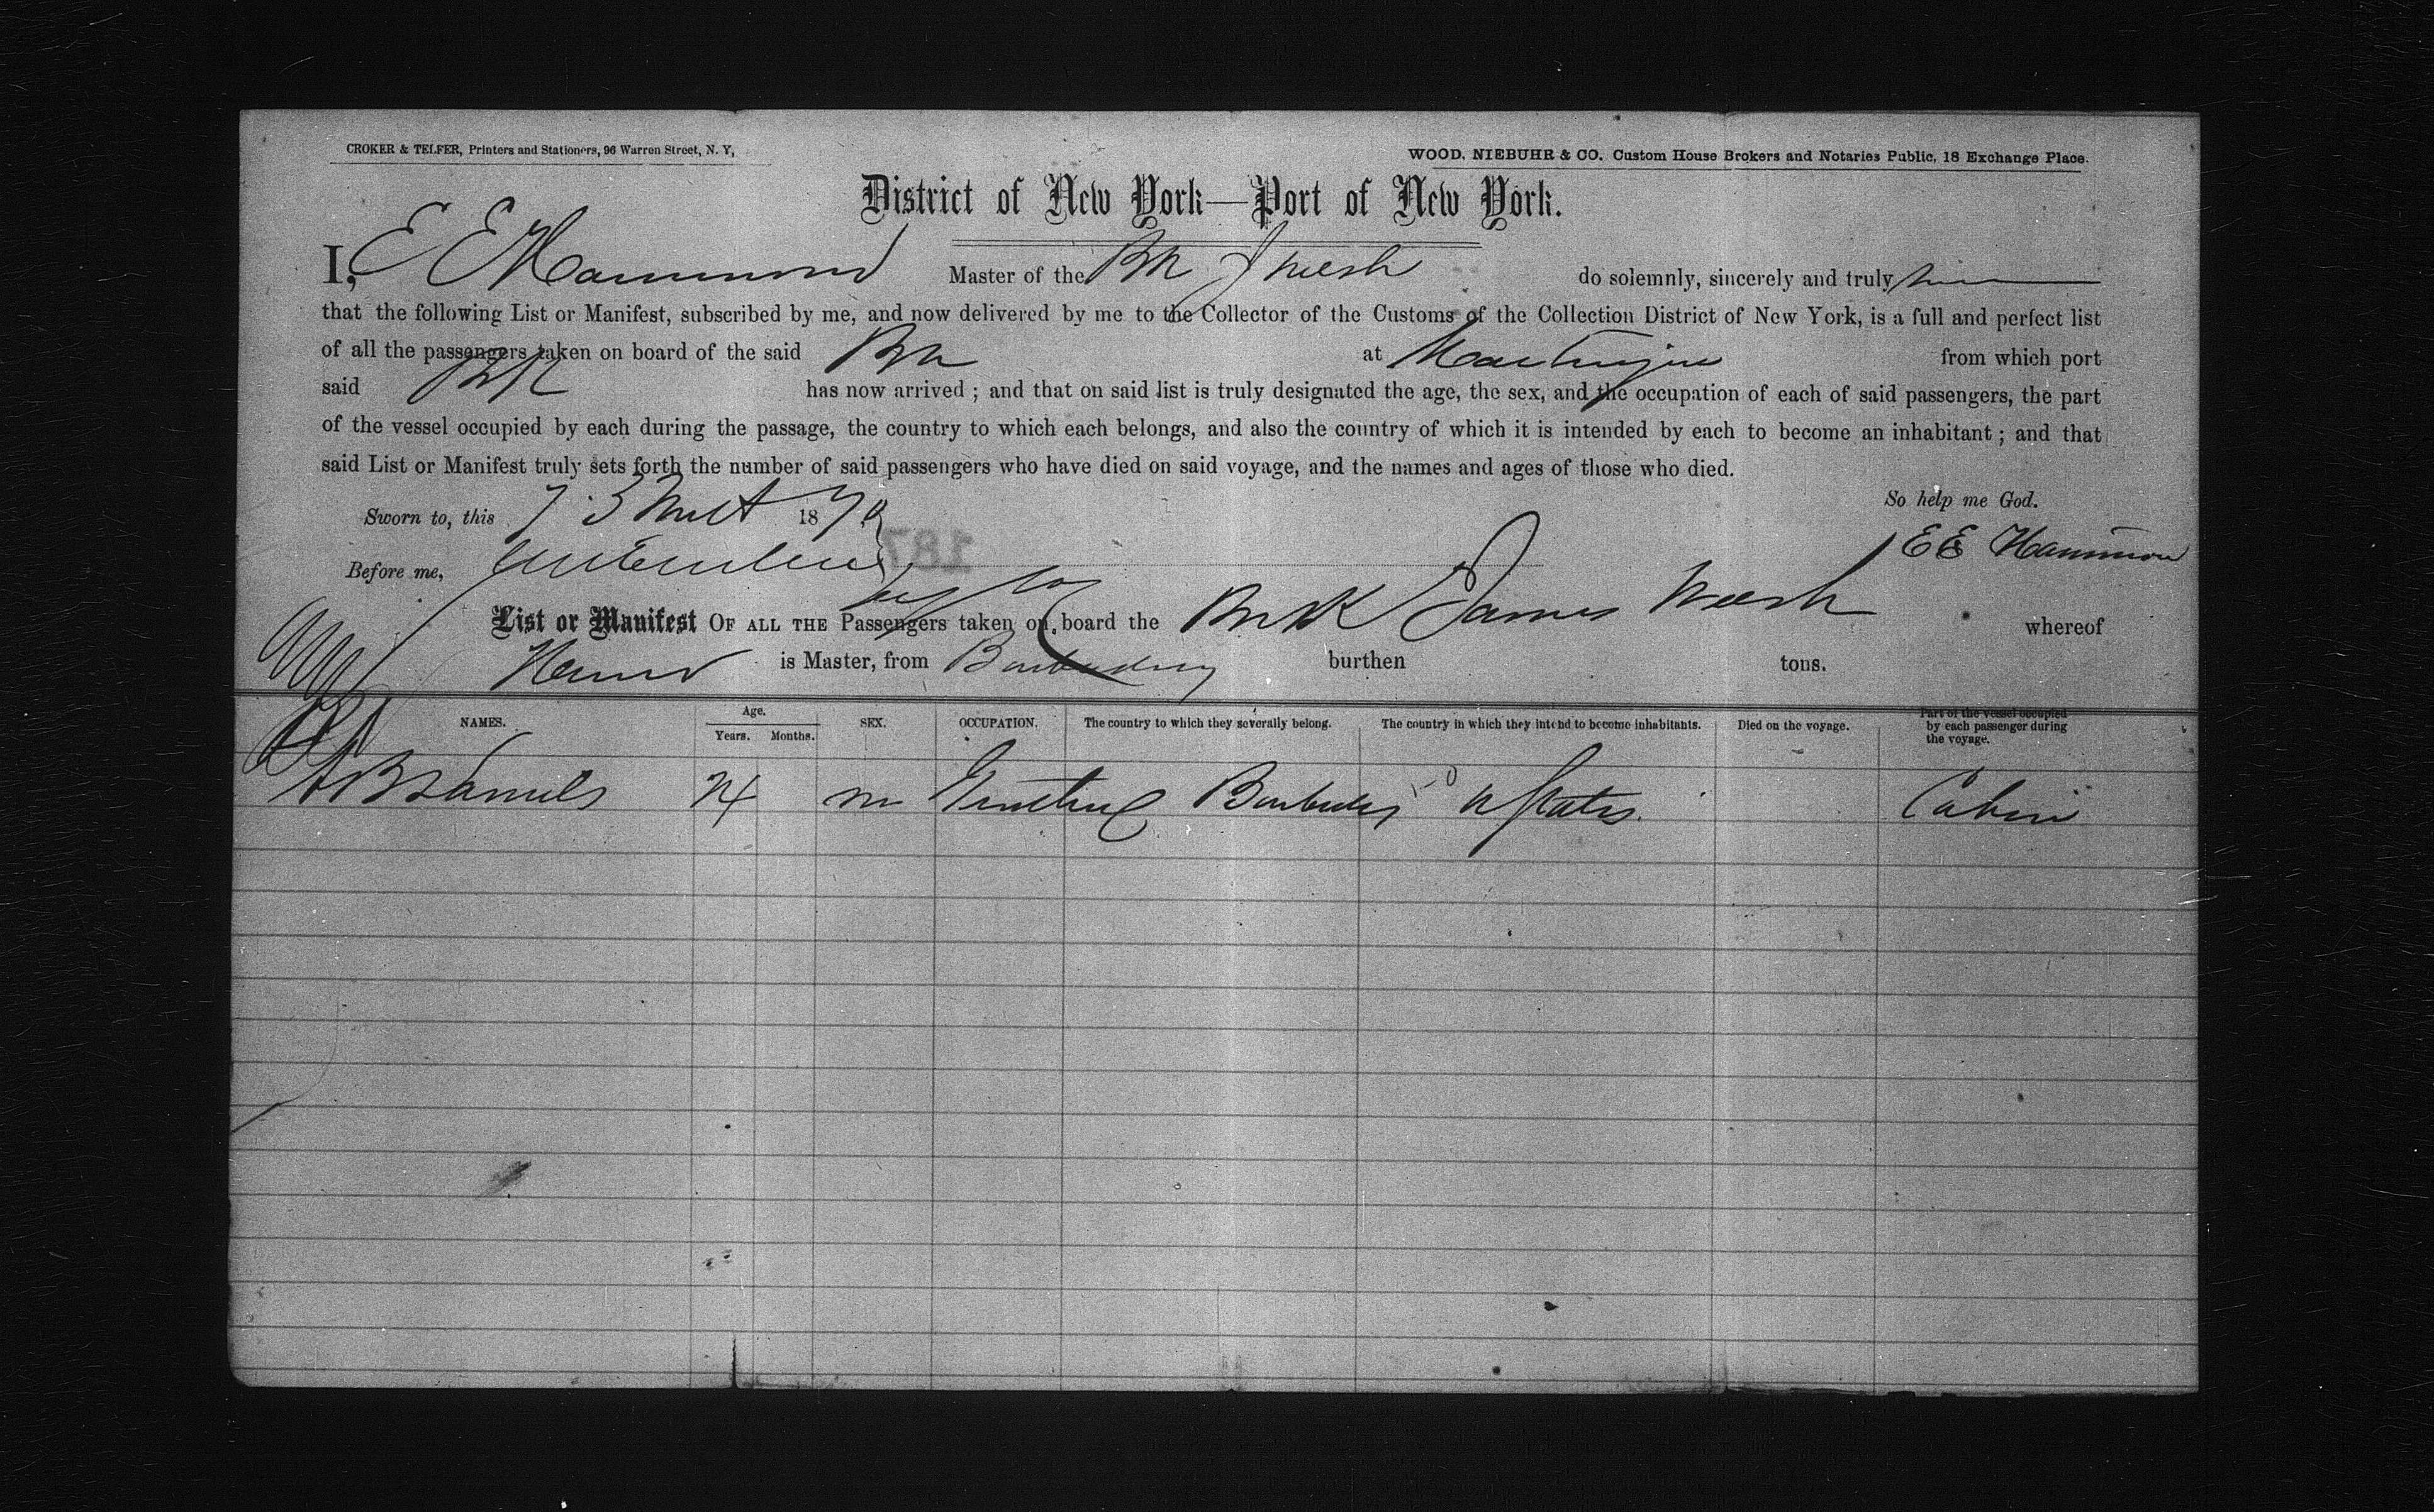 CROKER & TELFER, Printers and Stationers, 96 Warren Street, N. Y,
WOOD, NIEBUHR & CO. Custom House Brokers and Notaries Public, 18 Exchange Place.
District of New York—Port of New York.
I, E E Hammond Master of the Bk J Welsh do solemnly, sincerely and truly
that the following List or Manifest, subscribed by me, and now delivered by me to the Collector of the Customs of the Collection District of New York, is a full and perfect list
of all the passengers taken on board of the said Bk at Martinique from which port
said Bk has now arrived ; and that on said list is truly designated the age, the sex, and the occupation of each of said passengers, the part
of the vessel occupied by each during the passage, the country to which each belongs, and also the country of which it is intended by each to become an inhabitant ; and that
said List or Manifest truly sets forth the number of said passengers who have died on said voyage, and the names and ages of those who died.
So help me God.
Sworn to, this 18
187
E E Hammon
Before me,
List or Manifest OF ALL THE Passengers taken on board the James Welsh whereof
is Master, from burthen tons.
NAMES. Age. Years. Months. SEX. OCCUPATION. The country to which they severally belong. The country in which they intend to become inhabitants. Died on the voyage. Part of the vessel occupied by each passenger during the voyage.
m Barbados U States Cabin